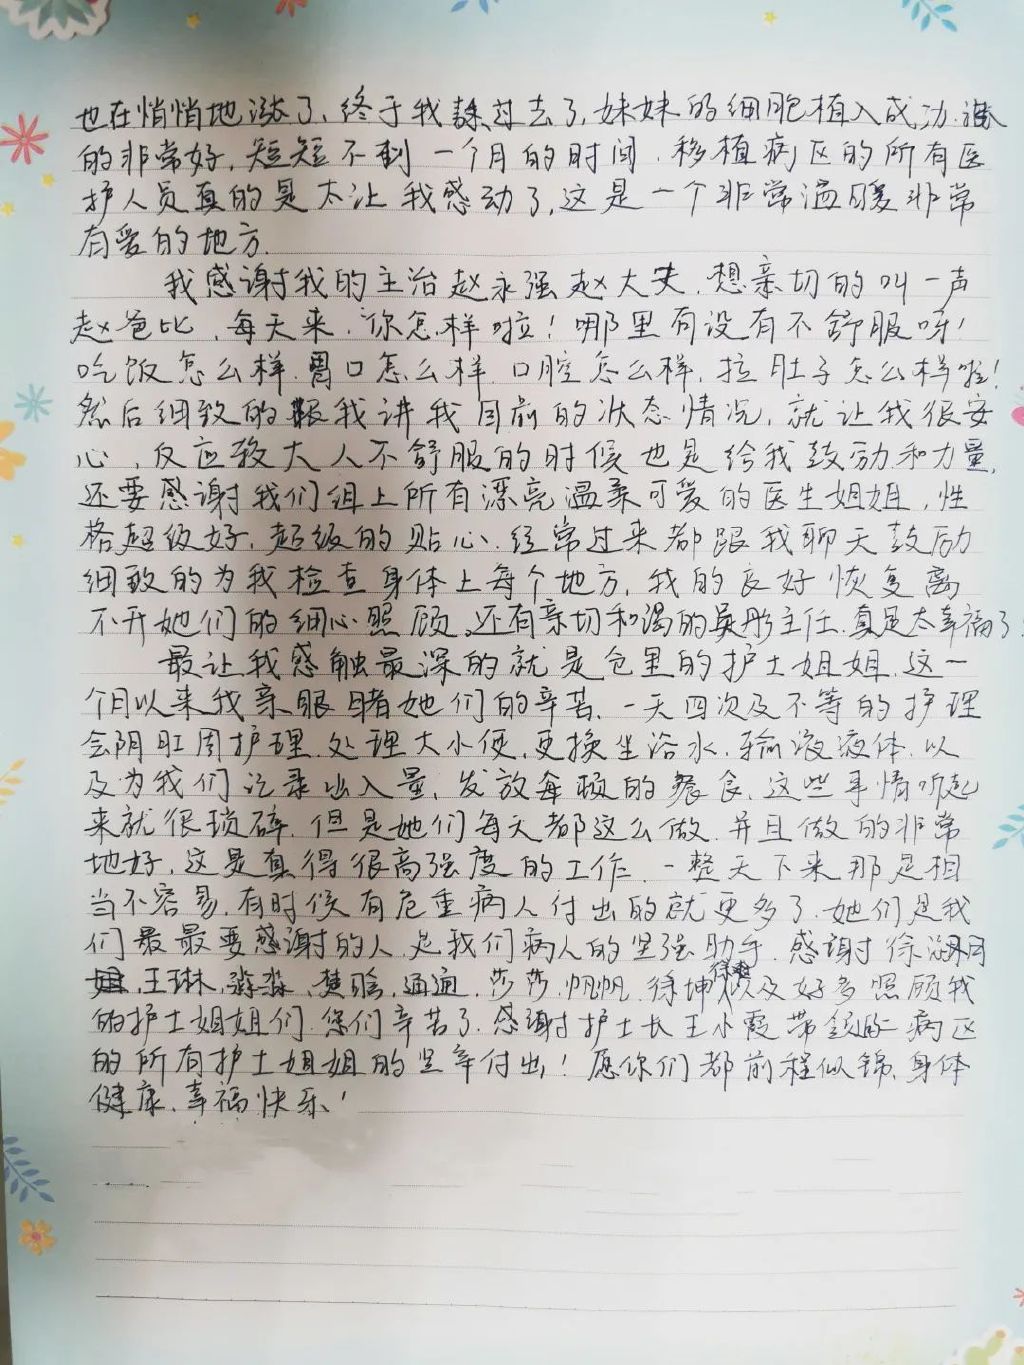 也在悄悄地涨了，终于我熬过去了，妹妹的细胞植入成功，
的非常好，短短不到一个月的时间，移植病区的所有医
护人员真的是太让我感动了，这是一个非常温暖非常
有爱的地方。
我感谢我的主治赵永强赵大夫，想亲切的叫一声
赵爸比，每天来，你怎样啦！哪里有没有不舒服呀！
吃饭怎么样，胃口怎么样，口腔怎么样，拉肚子怎么样啦！
然后细致的跟我讲我目前的状态情况，就让我很安
心，反应较大人不舒服的时候也是给我鼓励和力量，
还要感谢我们组上所有漂亮温柔可爱的医生姐姐，性
格超级好，超级的贴心，经常过来都跟我聊天鼓励
细致的为我检查身体上每个地方，我的良好恢复离
不开她们的细心照顾，还有亲切和蔼的吴彤主任，真是太幸福了
最让我感触最深的就是仓里的护士姐姐，这一
个月以来我亲眼睹她们的辛苦，一天四次及不等的护理
会阴肛周护理，处理大小便，更换坐浴水，输液液体，以
及为我们记录出入量，发放每顿的餐食，这些事情听起
来就很琐碎，但是她们每天都这么做，并且做的非常
地好，这是真得很高强度的工作，一整天下来那是相
当不容易，有时候有危重病人付出的就更多了，她们是我
们最最要感谢的人，是我们病人的坚强助手，感谢徐
王琳，淼淼，楚晗，通通，莎莎，帆帆，徐坤以及好多照顾我
的护士姐姐们，您们辛苦了，感谢护士长王小霞带领的病区
的所有护士姐姐的坚辛付出！愿你们都前程似锦，身体
健康，幸福快乐！